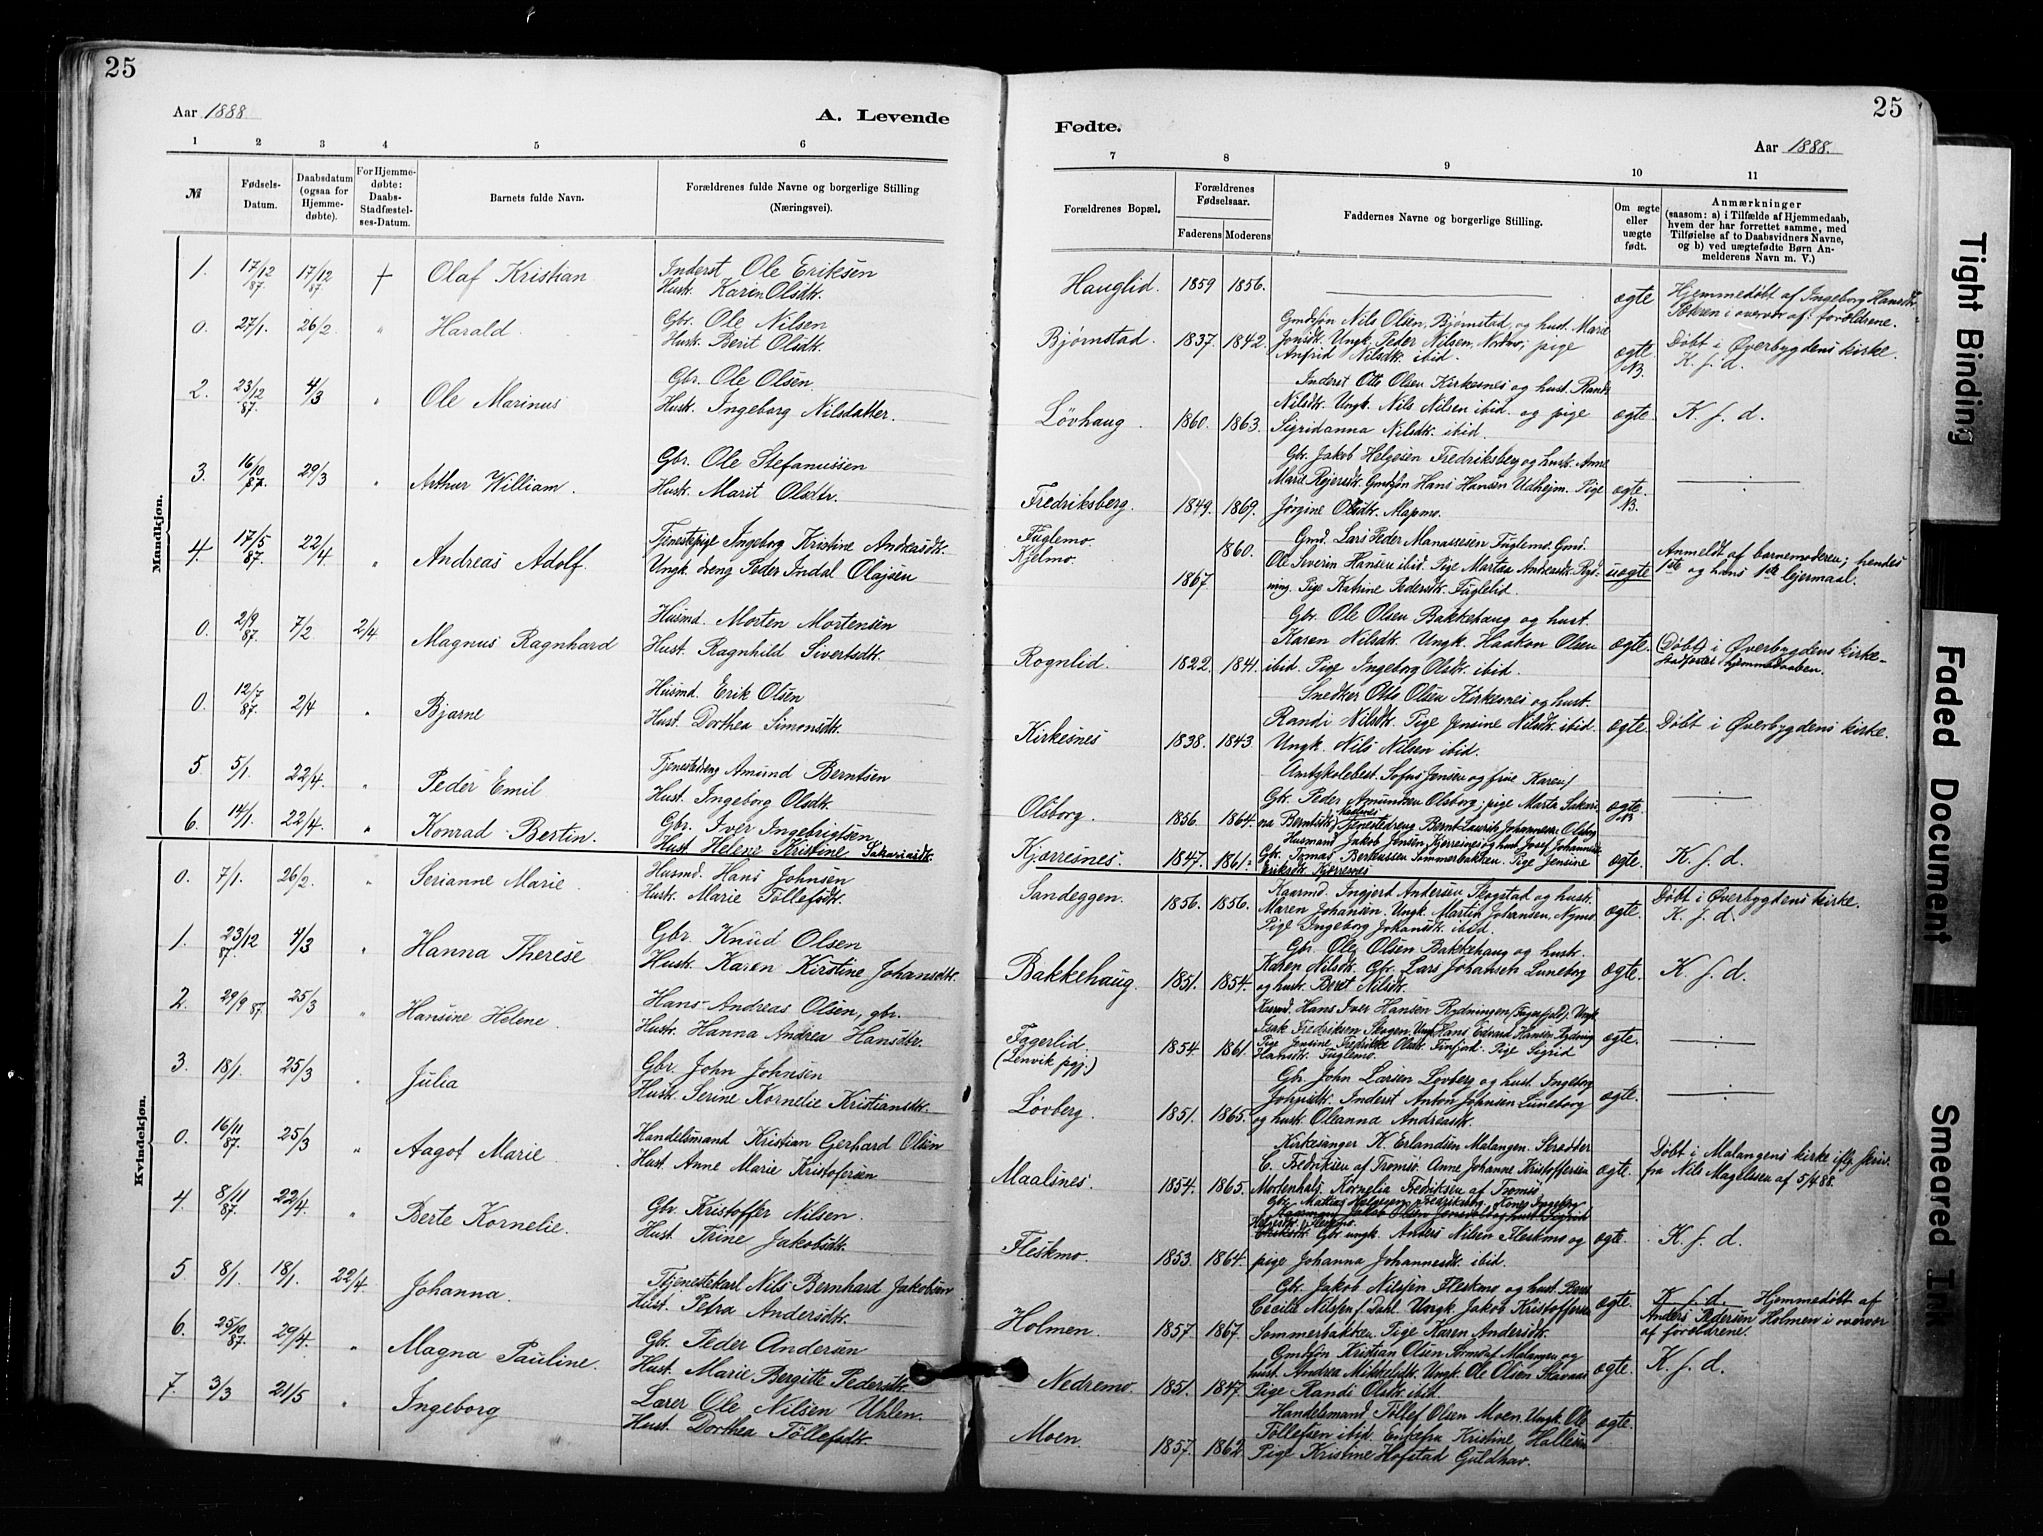 25
Aar 1888
A. Levende
1 2 3 4 5 6
№
Fødsels-Datum.
Daabsdatum (ogsaa for Hjemmedøbte).
For Hjemmedøbte: Daabs-Stadfæstelses-Datum.
Barnets fulde Navn.
Forældrenes fulde Navne og borgerlige Stilling (Næringsvei).
Mandkjøn.
1. 17/12 87. 17/12 87 † Olaf Kristian Inderst Ole Eriksen
Hust. Karen Olsdtr.
0. 27/1. 26/2. " Harald. Gbr. Ole Nilsen
Hust. Berit Olsdtr.
2. 23/12 87. 4/3 " Ole Marinus Gbr. Ole Olsen.
Hust. Ingeborg Nilsdatter.
3. 16/10 87. 29/3 " Arthur William. Gbr. Ole Stefanussen
Hust. Marit Olsdtr.
4. 17/5 87. 22/4. " Andreas Adolf. Tjenestepige Ingeborg Kristine Andreasdtr.
Ungk. dreng Peder Indal Olajsen
0. 2/9 87. 7/2 2/4 Magnus Ragnhard Husmd. Morten Mortensen
Hust. Ragnhild Sivertsdtr.
0. 12/7 87. 2/4 " Bjarne Husmd. Erik Olsen
Hust. Dorthea Simonsdtr.
5. 5/1. 22/4. " Peder Emil Tjenestedreng Amund Berntsen
Hust. Ingeborg Olsdtr.
6. 14/1. 22/4. " Konrad Bertin. Gbr. Iver Ingebrigtsen
Hust. Helene Kristine Sakariasdtr.
Kvindekjøn.
0. 7/1. 26/2. " Serianne Marie. Husmd. Hans Johnsen
Hust. Marie Tollefsdtr.
1. 23/12 87. 4/3 " Hanna Therese Gbr. Knud Olsen
Hust. Karen Kirstine Johansdtr.
2. 29/9 87. 25/3 " Hansine Helene. Hans Andreas Olsen, gbr.
Hustr. Hanna Andrea Hansdtr.
3. 18/1. 25/3 " Julia Gbr. John Johnsen
Hust. Serine Kornelie Kristiansdtr.
0. 16/11 87. 25/3 " Aagot Marie. Handelsmand Kristian Gerhard Olsen
Hust. Anne Marie Kristofersen
4. 8/11 87. 22/4. " Berte Kornelie. Gbr. Kristoffer Nilsen.
Hust. Trine Jakobsdtr.
5. 8/1. 18/1. 22/4. Johanna. Tjenestekarl Nils Bernhard Jakobsen
Hust. Petra Andersdtr.
6. 25/10 87. 29/4. " Magna Pauline. Gbr. Peder Andersen
Hust. Marie Bergitte Pedersdtr.
7. 3/3 21/5 " Ingeborg Lærer Ole Nilsen Uhlen.
Hust. Dorthea Tollefsdtr.
25
Fødte.
Aar 1888.
7 8 9 10 11
Forældrenes Bopæl.
Forældrenes Fødselsaar.
Faderens Moderens
Faddernes Navne og borgerlige Stilling.
Om ægte eller uægte født.
Anmærkninger
(saasom: a) i Tilfælde af Hjemmedaab, hvem der har forrettet samme, med Tilføielse af to Daabsvidners Navne, og b) ved uægtefødte Børn Anmelderens Navn m. V.)
Hauglid. 1859 1856. ægte Hjemmedøbt af Ingeborg Hansdtr.
i overvær af forældrene.
Gmdsøn Nils Olsen, Bjørnstad, og hust. Marie
Bjørnstad. 1837. 1842. Jonsdtr. Ungk. Peder Nilsen, Nordmo; pige
Anfrid Nilsdtr. ibid. ægte. NB. Døbt i Øverbygdens kirke.
K. f. d.
Inderst Otto Olsen Kirkesnes og hust. Randi
Nilsdtr. Ungk. Nils Nilsen ibid. og pige
Løvhaug. 1860. 1863. Sigridanna Nilsdtr. ibid. ægte. K. f. d.
Gbr. Jakob Helgesen Fredriksberg og hust. Anne
Marit Rejersdtr. Gmdsøn Hans Hansen Udhejm. Pige
Fredriksberg. 1849. 1869. Jørgine Olsdtr. Mapmo. ægte. NB.
Fuglemo. 1860. Gmd. Lars Peder Manassesen Fuglemo. Gmd.
Kjelmo. 1867. Ole Severin Hansen ibid. Pige Martea Andreasdtr. Rydning.
Pige Katrine Pedersdtr. Fuglelid. uægte Anmeldt af barnemoderen; hendes
1ste og hans 1ste lejermaal.
Gbr. Ole Olsen Bakkehaug og hust.
Karen Nilsdtr. Ungk. Haakon Olsen
Rognlid. 1822. 1841. ibid. Pige Ingeborg Olsdtr. ibid. ægte. (Døbt) i Øverbygdens kirke
stadfæstet hjemmedaaben.
Snedker Otto Olsen Kirkesnes og hust.
Randi Nilsdtr. Pige Jensine Nilsdtr. ibid.
Kirkesnes 1838. 1843. Ungk. Nils Nilsen ibid. ægte. Døbt i Øverbygdens kirke.
Amtskolebest. Sofus Jensen og frue Karen,
Olsborg. 1856. 1864. Gbr. Peder Amundsen Olsborg; pige Marta Sakarina
Berntsdtr. Tjenestedreng Bernt Laurits Johannesen Olsborg ægte. NB
Husmand Jakob Jensen, Kjerresnes og hust. Josef Johannesen
Kjærresnes. 1847. 1861. Gbr. Tomas Berteussen Sommerbakken. Pige Jensine
Eriksdtr. Kjerresnes ægte. K. f. d.
Sandeggen. 1856. 1856. Kaarmd. Ingjerd Andersen Skogstad og hustr.
Maren Johansen. Ungk. Martin Johansen, Nymo.
Pige Ingeborg Johansdtr. ibid. ægte. Døbt i Øverbygdens kirke.
K. f. d.
Gbr. Ole Olsen Bakkehaug og hust.
Bakkehaug. 1851. 1854. Karen Nilsdtr. Gbr. Lars Johansen Luneborg
og hust. Beret Nilsdtr. ægte. K. f. d.
Kaarmd. Hans Iver Hansen Rydningen, Ungk.
Fagerlid (Lenvik pgj.) 1854. 1861. Isak Fredriksen Skogen. Ungk. Hans Edvard Hansen Rydning
Pige Jensine Fredrikke Olsdtr. Finfjord. Pige Sigrid
Hansdtr. Fuglemo. ægte.
Gbr. John Larsen Lovberg og hust. Ingeborg
Løvberg. 1851. 1865. Johnsdtr. Inderst Anton Johnsen Luneborg
og hust. Oleanna Andreasdtr. ægte.
Kirkesanger K. Erlandsen Malangen. Skrædder
C. Fredriksen af Tromsø. Anne Johanne Kristoffersen
Maalsnes. 1854. 1865. Mortenhals. Kornelia Fredriksen af Tromsø ægte. Døbt i Malangens kirke ifl. skriv.
fra Nils Magelssen af 5/4 88.
Gbr. Mattias Helgesen Fredriksberg, Kone Ingeborg
Fleskmo. 1853. 1864. Gbr. ungk. Anders Nilsen Fleskmo og
pige Johanna Johannesdtr. ibid. ægte. K. f. d.
Gbr. Jakob Nilsen Fleskmo og hust. Berit
Cecilie Nilsen f. Dahl. Ungk. Jakob Kristoffersen
Holmen. 1857. 1867. Sommerbakken. Pige Karen Andersdtr. ægte. K. f. d. Hjemmedøbt af
Anders Pedersen Holmen i overvær
af forældrene.
Gmdsøn Kristian Olsen af Malangen og
hust. Andrea Mikkelsdtr. Ungk. Ole Olsen
Nedremo. 1851. 1847. Pige Randi Olsdtr. ibid. ægte. K. f. d.
Handelsmand Tollef Olsen Moen. Ungk. Ole
Moen. 1857. 1862. Tollefsen ibid. Enkefru Kristine Hallesen
Pige Kristine Hofstad Guldhav. ægte.
Tight Binding
Faded Document
Smeared Ink